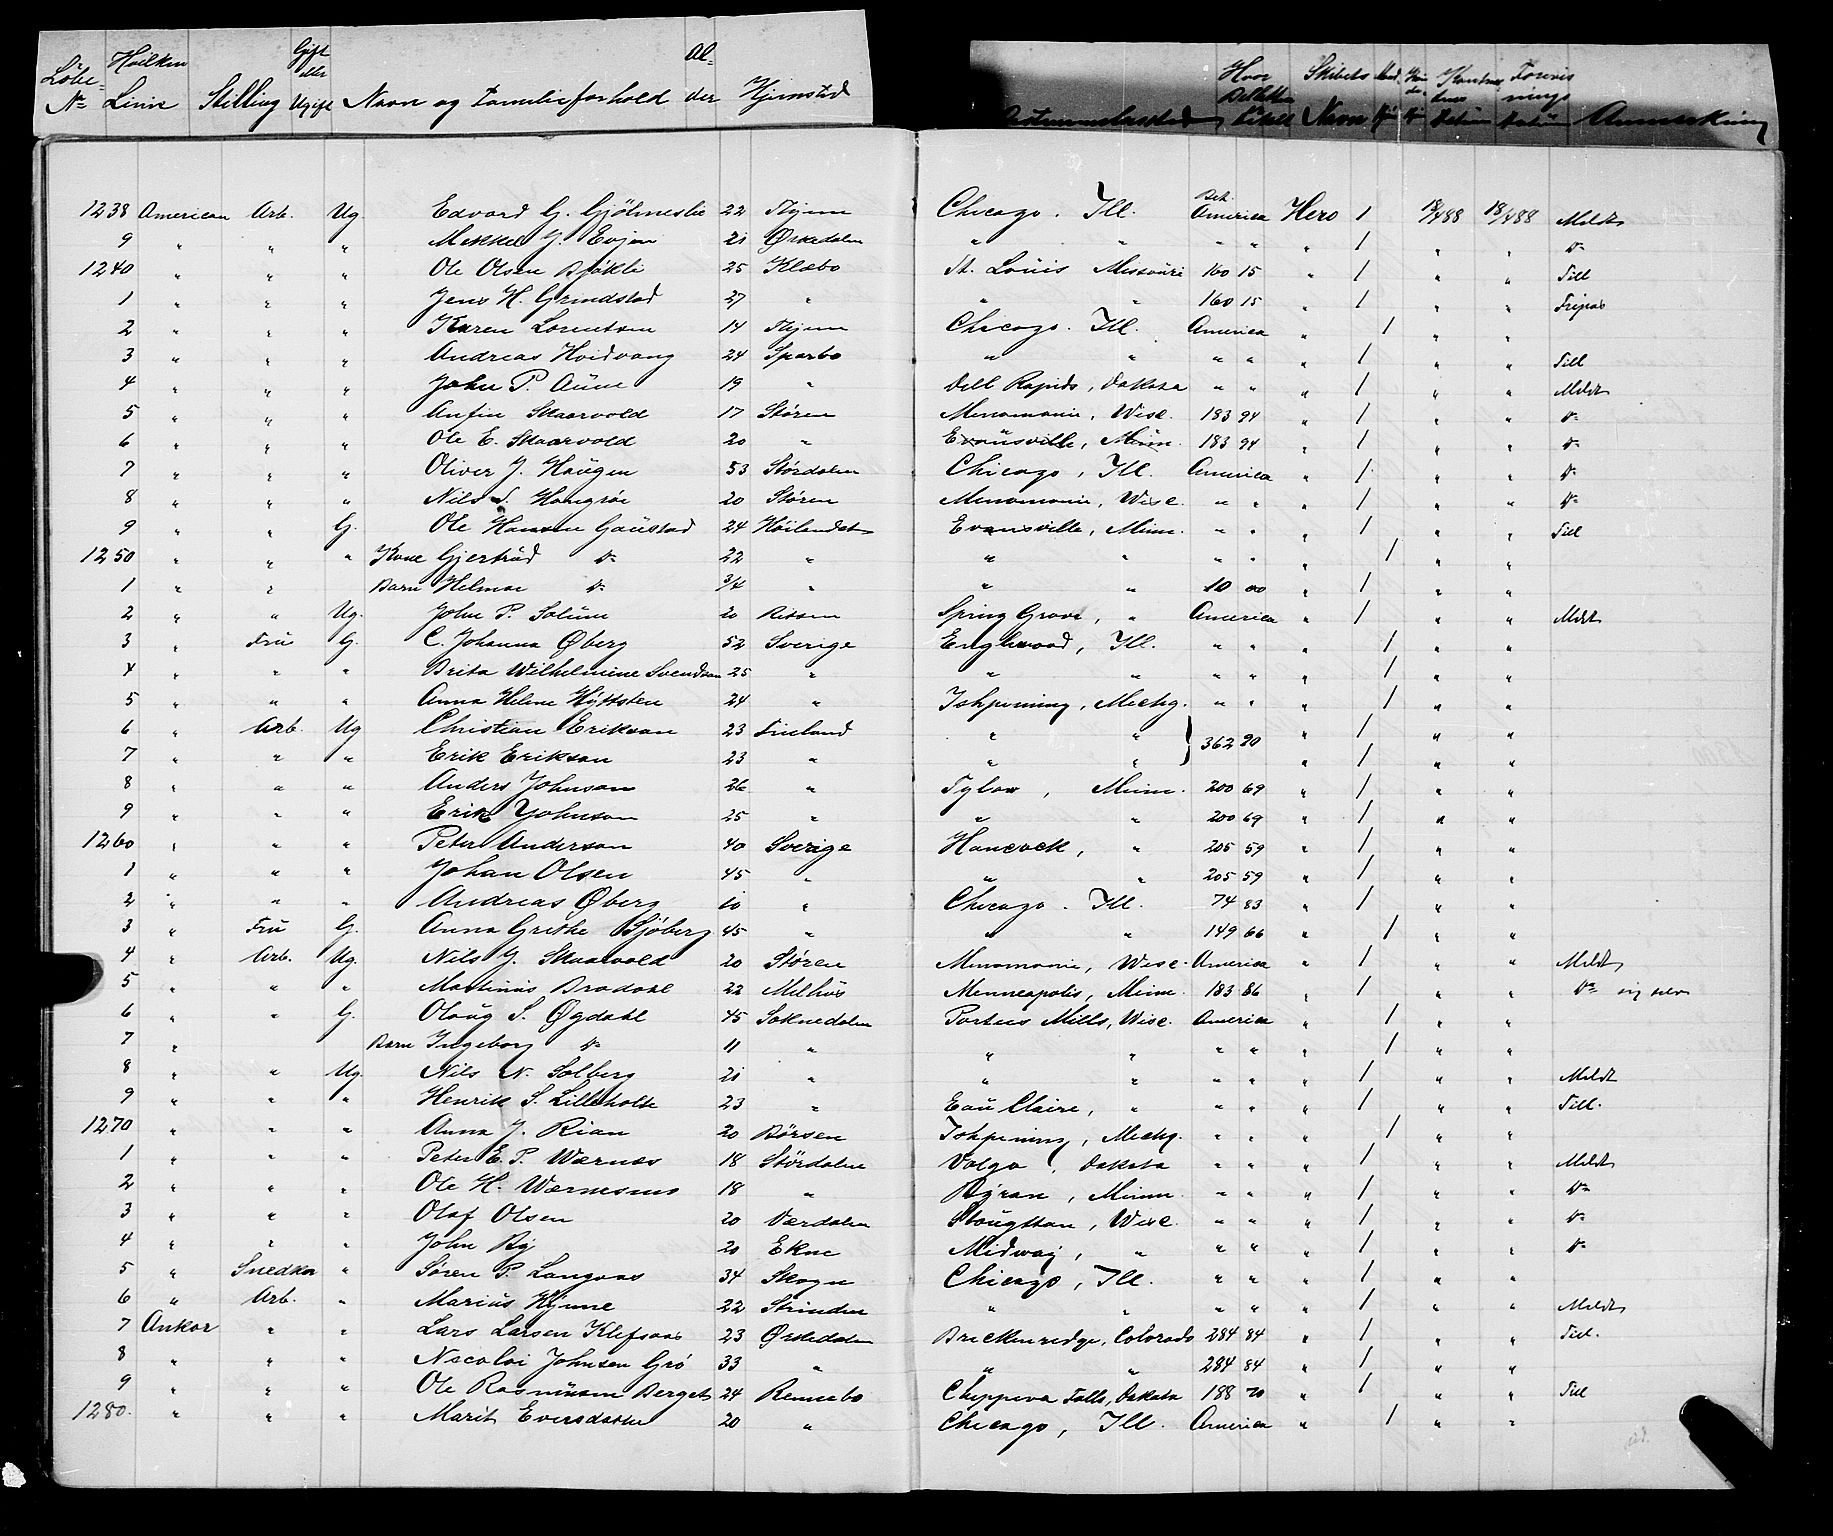 Löbe- Hvilken Gift Al-
No Linie Stilling eller Ugift Navn og Familieforhold der Hjemsted Bestemmelsessted Hvor Billetten Skibets Navn Anmerkning
1238 American Arb. Ug. Edvard G. Gjölmeslie 22 Chicago. Ill. Bet. America Hero 1 18/4 88 18/4 88 Meldt
9 " " " Mekkel G. Evjen 21 Ørkedalen " " " " " 1 " " do
1240 " " " Ole Olsen Bjökli 25 Klæbo St. Louis Missouri 160 15 " 1 " " Till
1 " " " Jens H. Grindstad 27 " " " 160 15 " 1 " " Fripas
2 " " " Karen Lorentsen 14 Chicago. Ill. America " 1 " "
3 " " " Andreas Hoidvang 24 Sparbo " " " " " 1 " " Till
4 " " " John P. Aune 19 " Dell Rapids, Dakota " " " 1 " " Meldt
5 " " " Anfin Skaarvold 17 Støren Menomonie, Wisc. 183 94 " 1 " " do
6 " " " Ole E. Skaarvold 20 " Evansville, Minn. 183 94 " 1 " " do
7 " " " Oliver J. Haugen 53 Størdalen Chicago, Ill. America " 1 " " do
8 " " " Nils S. Hongröe 20 Støren Menomonie, Wisc. " " " 1 " " do
9 " " G. Ole Hansen Gaustad 24 Høilandet Evansville, Minn. " " " 1 " " Till
1250 " " " Kone Gjertrud do 22 " " " " " " 1 " "
1 " " Barn Helmar do 3/4 " " " 10 00 " 1 " "
2 " " Ug. John P. Solum 20 Rissen Spring Grove, " America " 1 " " Meldt
3 " Fru G. C. Johanna Øberg 52 Sverige Englewood, Ill. " " " 1 " "
4 " " " Brita Wilhelmine Svendsen 25 " " " " " " 1 " "
5 " " " Anna Helene Hyttsten 24 " Ishpeming, Michg. " " " 1 " "
6 " Arb. Ug Christian Erikson 23 Finland " " } 362 90 " 1 " "
7 " " " Erik Erikson 23 " " " " 1 " "
8 " " " Anders Johnson 26 " Tyler, Minn. 200 69 " 1 " "
9 " " " Erik Johnson 25 " " " 200 69 " 1 " "
1260 " " " Peter Anderson 40 Sverige Hancock, " 205 59 " 1 " "
1 " " " Johan Olsen 45 " " " 205 59 " 1 " "
2 " " " Andreas Øberg 10 " Chicago. Ill. 74 83 " 1 " "
3 " Fru G. Anna Grethe Sjöberg 45 " " " 149 66 " 1 " "
4 " Arb. Ug. Nils G. Skaarvold 20 Støren Menomonie, Wisc. America " 1 " " Meldt
5 " " " Martinus Bradahl 22 Melhus Menneapolis, Minn. 183 86 " 1 " " do sig selv
6 " " G. Olaug S. Øgdahl 45 Soknedalen Porters Mills, Wisc. America " 1 " "
7 " Barn Ingeborg do 11 " " " " " " 1 " "
8 " " Ug. Nils N. Solberg 21 " " " " " " 1 " " Meldt
9 " " " Henrik S. Lilleholt 23 " Eau Claire, " " " " 1 " " Till.
1270 " " " Anna J. Rian 20 Börsen Ishpeming, Michg. " " " 1 " "
1 " " " Peter E. P. Wærnes 18 Størdalen Volga, Dakota " " " 1 " " Meldt
2 " " " Ole H. Wærnesmo 18 " Byron, Minn. " " " 1 " " do
3 " " " Olaf Olsen 20 Værdalen Stougtton, Wisc. " " " 1 " " do
4 " " " John By 20 Ekne Midway, " " " " 1 " " do
5 " Snedker " Søren P. Langvas 34 Skogn Chicago, Ill. " " " 1 " "
6 " Arb. " Marius 22 Strinden " " " " " 1 " " Meldt
7 Ankor " " Lars Larsen Klefsaas 23 Ørkedalen Breckenredge, Colorado 284 84 " 1 " " Till.
8 " " " Necolai Johnsen Grö 33 " " " 284 84 " 1 " "
9 " " " Ole Rasmusen Berget 24 Rennebo Cheppeva Falls, Dakota 188 20 " 1 " " Till
1280. " " " Marit Eversdatter 20 " Chicago, Ill. America " 1 " "